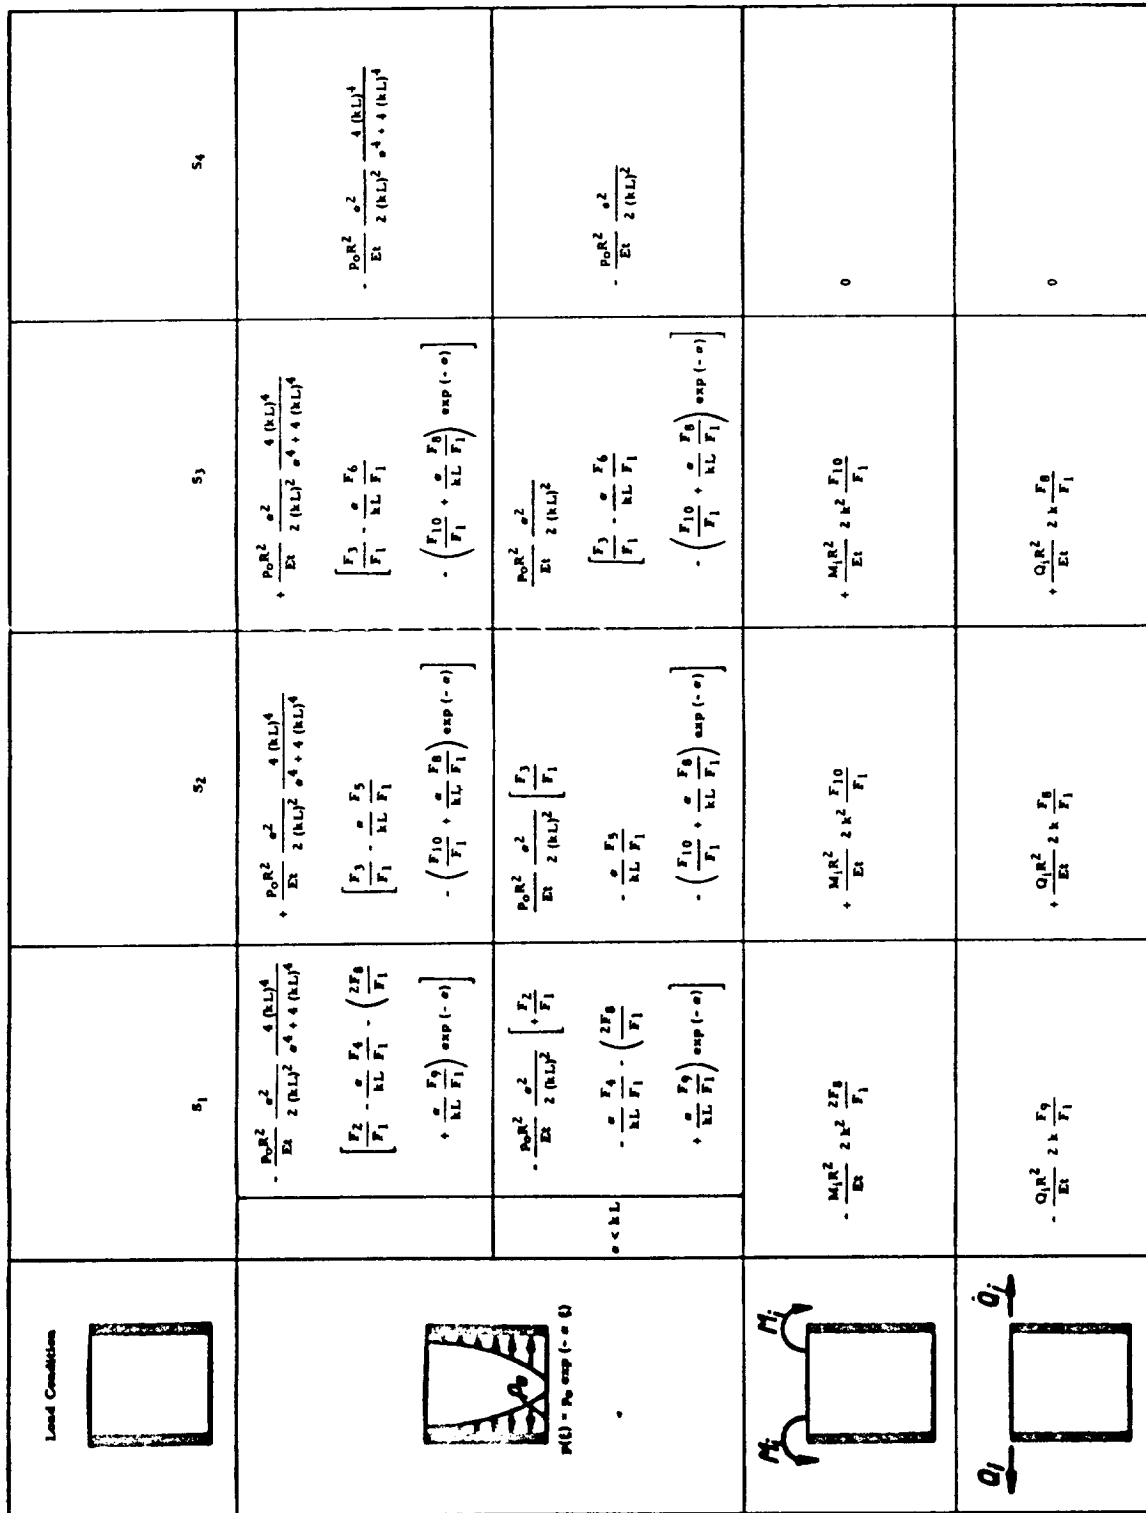 Load Condition
S₁
S₂
S₃
S₄
P(ξ) = p₀ exp (- α ξ)
p₀
- p₀R²/Et α²/2 (kL)² 4 (kL)⁴/α⁴ + 4 (kL)⁴
[F₂/F₁ - α/kL F₄/F₁ - (2F₈/F₁
+ α/kL F₉/F₁) exp (- α)]
+ p₀R²/Et α²/2 (kL)² 4 (kL)⁴/α⁴ + 4 (kL)⁴
[F₃/F₁ - α/kL F₅/F₁
- (F₁₀/F₁ + α/kL F₈/F₁) exp (- α)]
+ p₀R²/Et α²/2 (kL)² 4 (kL)⁴/α⁴ + 4 (kL)⁴
[F₃/F₁ - α/kL F₆/F₁
- (F₁₀/F₁ + α/kL F₈/F₁) exp (- α)]
- p₀R²/Et α²/2 (kL)² 4 (kL)⁴/α⁴ + 4 (kL)⁴
α < kL
- p₀R²/Et α²/2 (kL)² [+ F₂/F₁
- α/kL F₄/F₁ - (2F₈/F₁
+ α/kL F₉/F₁) exp (- α)]
p₀R²/Et α²/2 (kL)² [F₃/F₁
- α/kL F₅/F₁
- (F₁₀/F₁ + α/kL F₈/F₁) exp (- α)]
p₀R²/Et α²/2 (kL)²
[F₃/F₁ - α/kL F₆/F₁
- (F₁₀/F₁ + α/kL F₈/F₁) exp (- α)]
- p₀R²/Et α²/2 (kL)²
Mᵢ Mᵢ
- MᵢR²/Et 2 k² 2F₈/F₁
+ MᵢR²/Et 2 k² F₁₀/F₁
+ MᵢR²/Et 2 k² F₁₀/F₁
0
Qᵢ Qᵢ
- QᵢR²/Et 2 k F₉/F₁
+ QᵢR²/Et 2 k F₈/F₁
+ QᵢR²/Et 2 k F₈/F₁
0